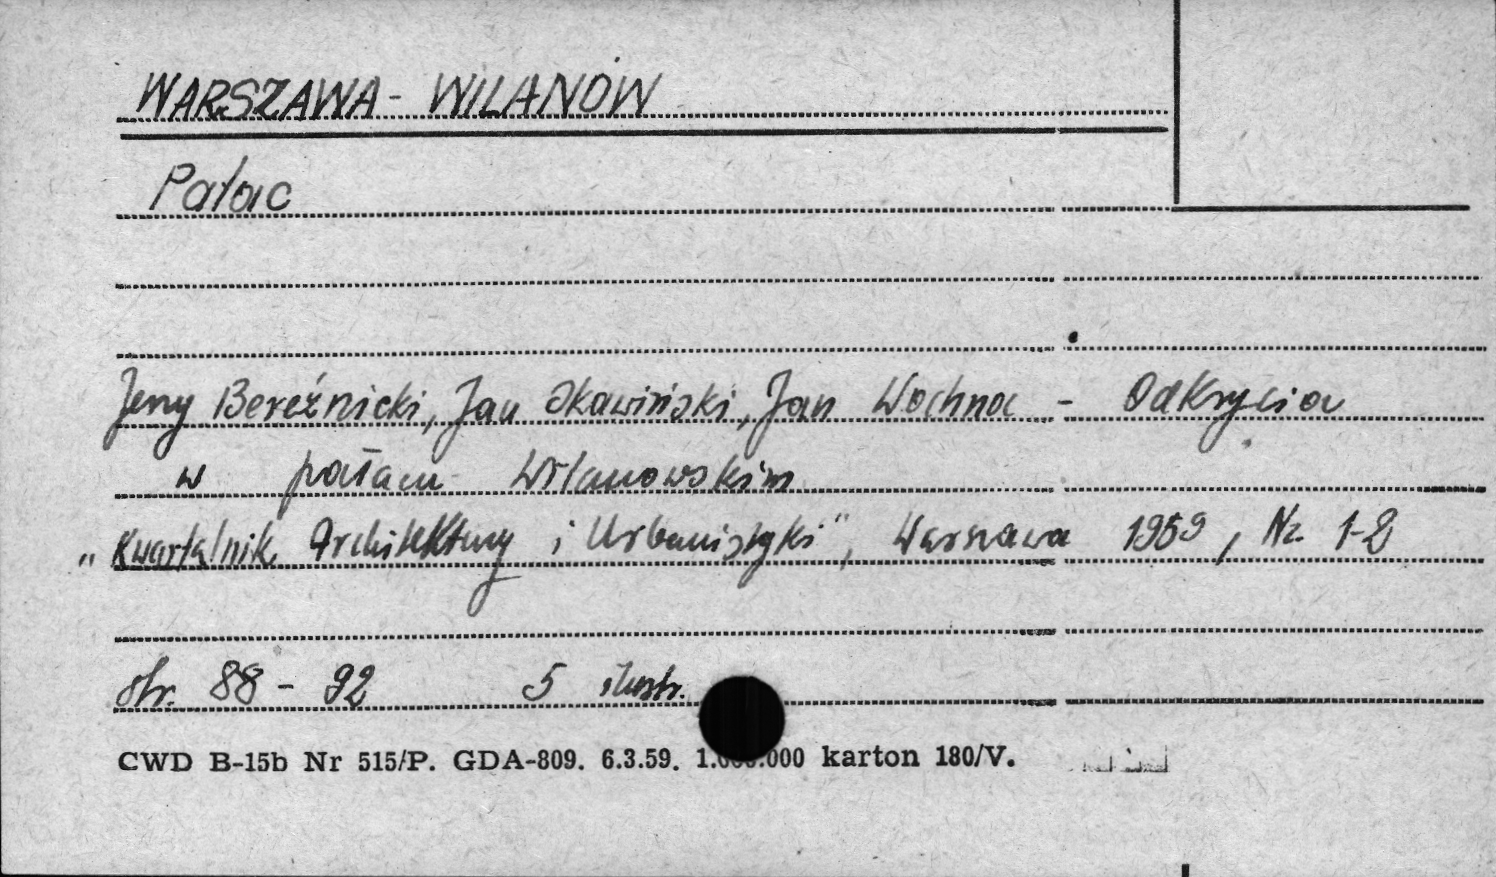 WARSZAWA - WILANÓW
Pałac
Jerzy Bereźnicki, Jan Skawiński, Jan Wochna - Odkrycia
w pałacu Wilanowskim
„Kwartalnik Architektury i Urbanistyki", Warszawa 1959, Nr. 1-2
str. 88 - 92 5 ilustr.
CWD B-15b Nr 515/P. GDA-809. 6.3.59. 1.000.000 karton 180/V.